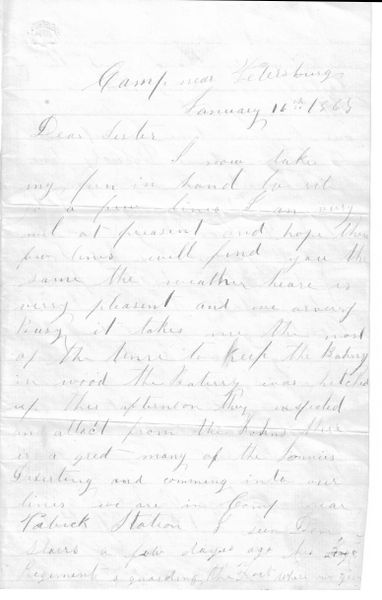 Camp near Petersburg
January 16th 1865
Dear Sister
I now take
my pen in hand to rit
to a few lines I am very
well at pleasent and hope these
few lines will find you the
same the weather heare is
verry pleasent and we ar verry
busy it takes me the most
of the time to keep the Battery
in wood the Battery was hitched
up this afternoon they expected
an attact from the Johns there
is a greet many of the Johnies
Deserting and comming into our
lines we are in Camp near
Station I seen
Stairs a few dayes ago his
Regiment is guarding the where we